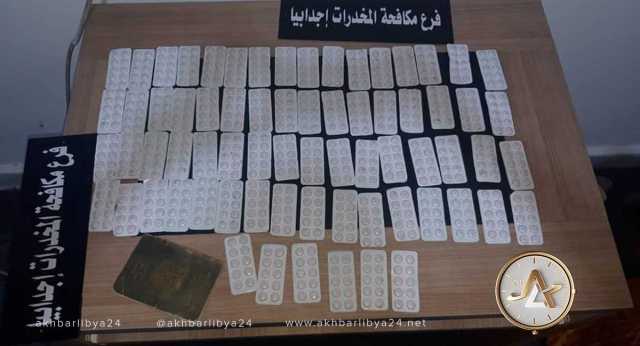 فرع مكافحة المخدرات إجدابيا
فرع مكافحة المخدرات إجدابيا
akhbarlibya24 @akhbarlibya24 www.akhbarlibya24.net